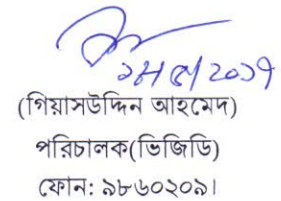 (গিয়াসউদ্দিন আহমেদ)
পরিচালক(ভিজিডি)
ফোন: ৯৮৬০২০৯।